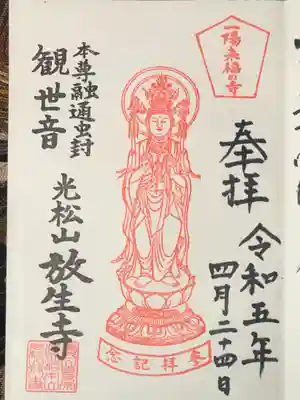 一陽来福の寺
奉拝
令和五年
四月二十四日
本尊融通虫封
観世音
光松山
放生寺
参拝記念